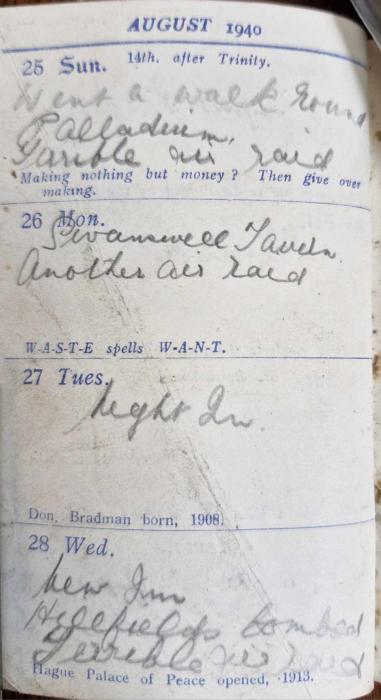 AUGUST 1940
25 Sun. 14th. after Trinity.
Went a walk round
Palladium,
Tarible air raid
Making nothing but money? Then give over
making.
26 Mon.
Swanswell Tavern.
Another air raid
W-A-S-T-E spells W-A-N-T.
27 Tues.
Night In.
Don. Bradman born, 1908.
28 Wed.
New Inn
Hillfields bombed
Terrible air raid
Hague Palace of Peace opened, 1913.